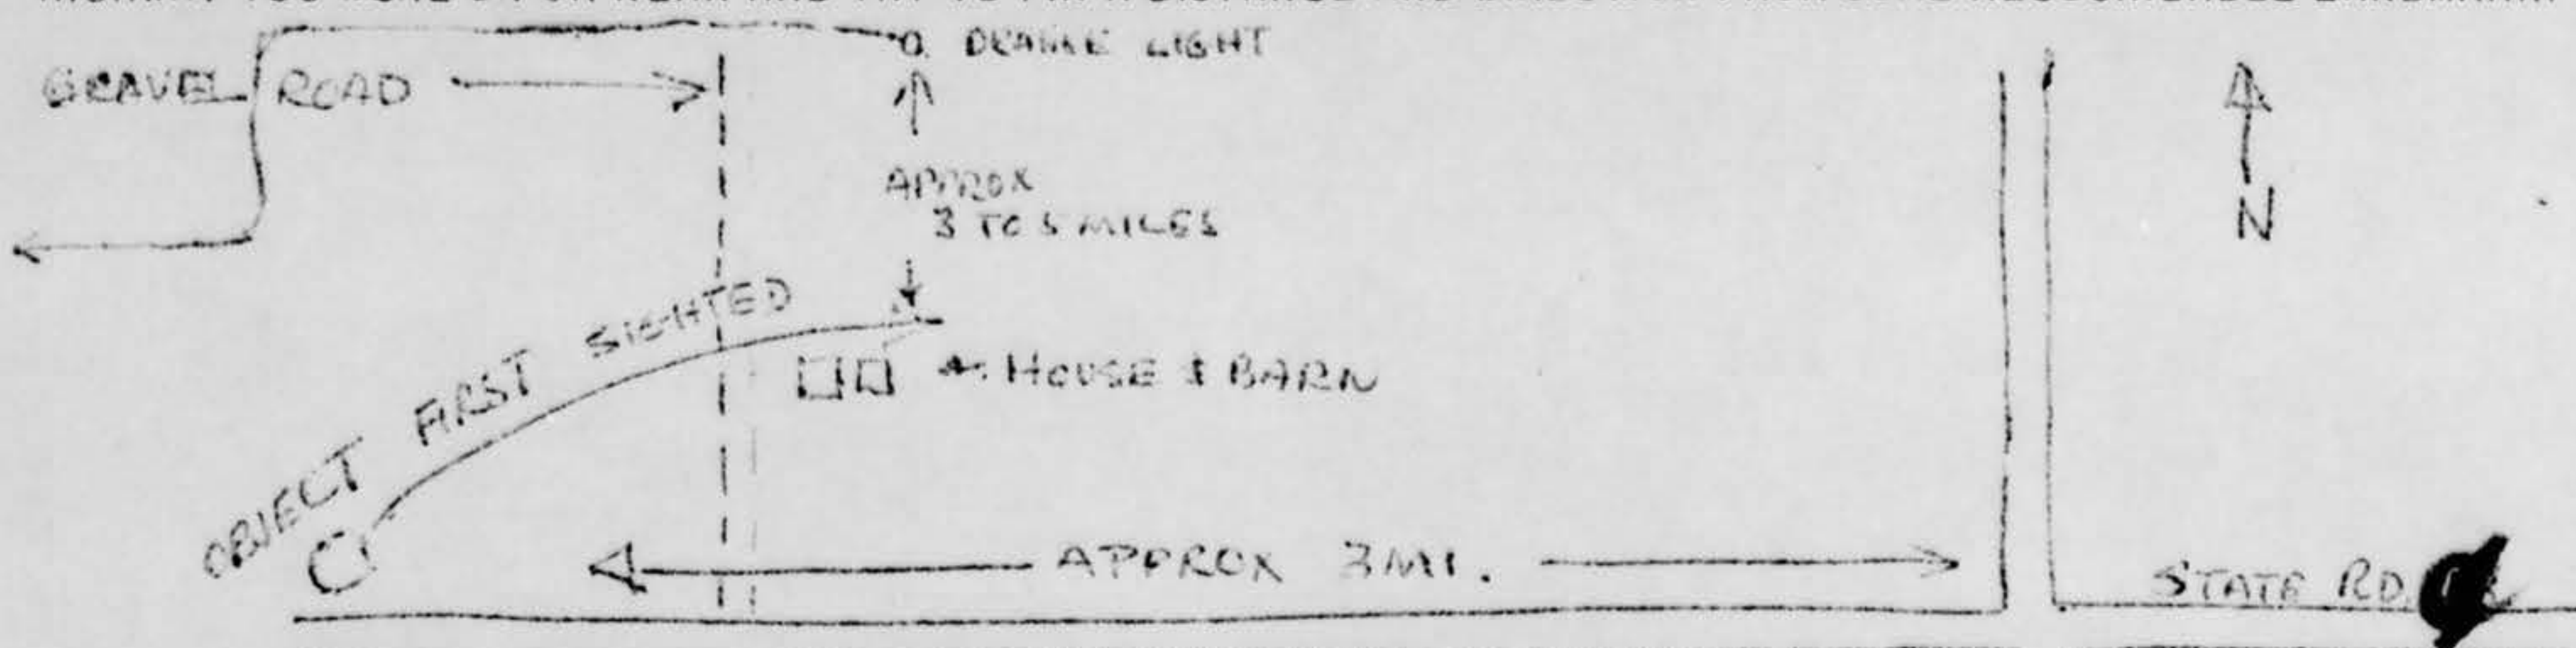 GRAVEL ROAD
LIGHT
APPROX
3 TO 5 MILES
N
OBJECT FIRST SIGHTED
HOUSE & BARN
APPROX 3 MI.
STATE RD.